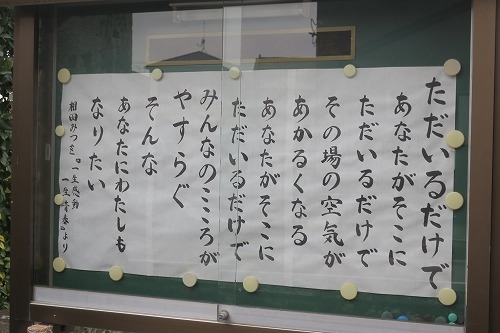 ただいるだけで
あなたがそこに
ただいるだけで
その場の空気が
あかるくなる
あなたがそこに
ただいるだけで
みんなのこころが
やすらぐ
そんな
あなたにわたしも
なりたい
相田みつを『一生感動
一生青春』より